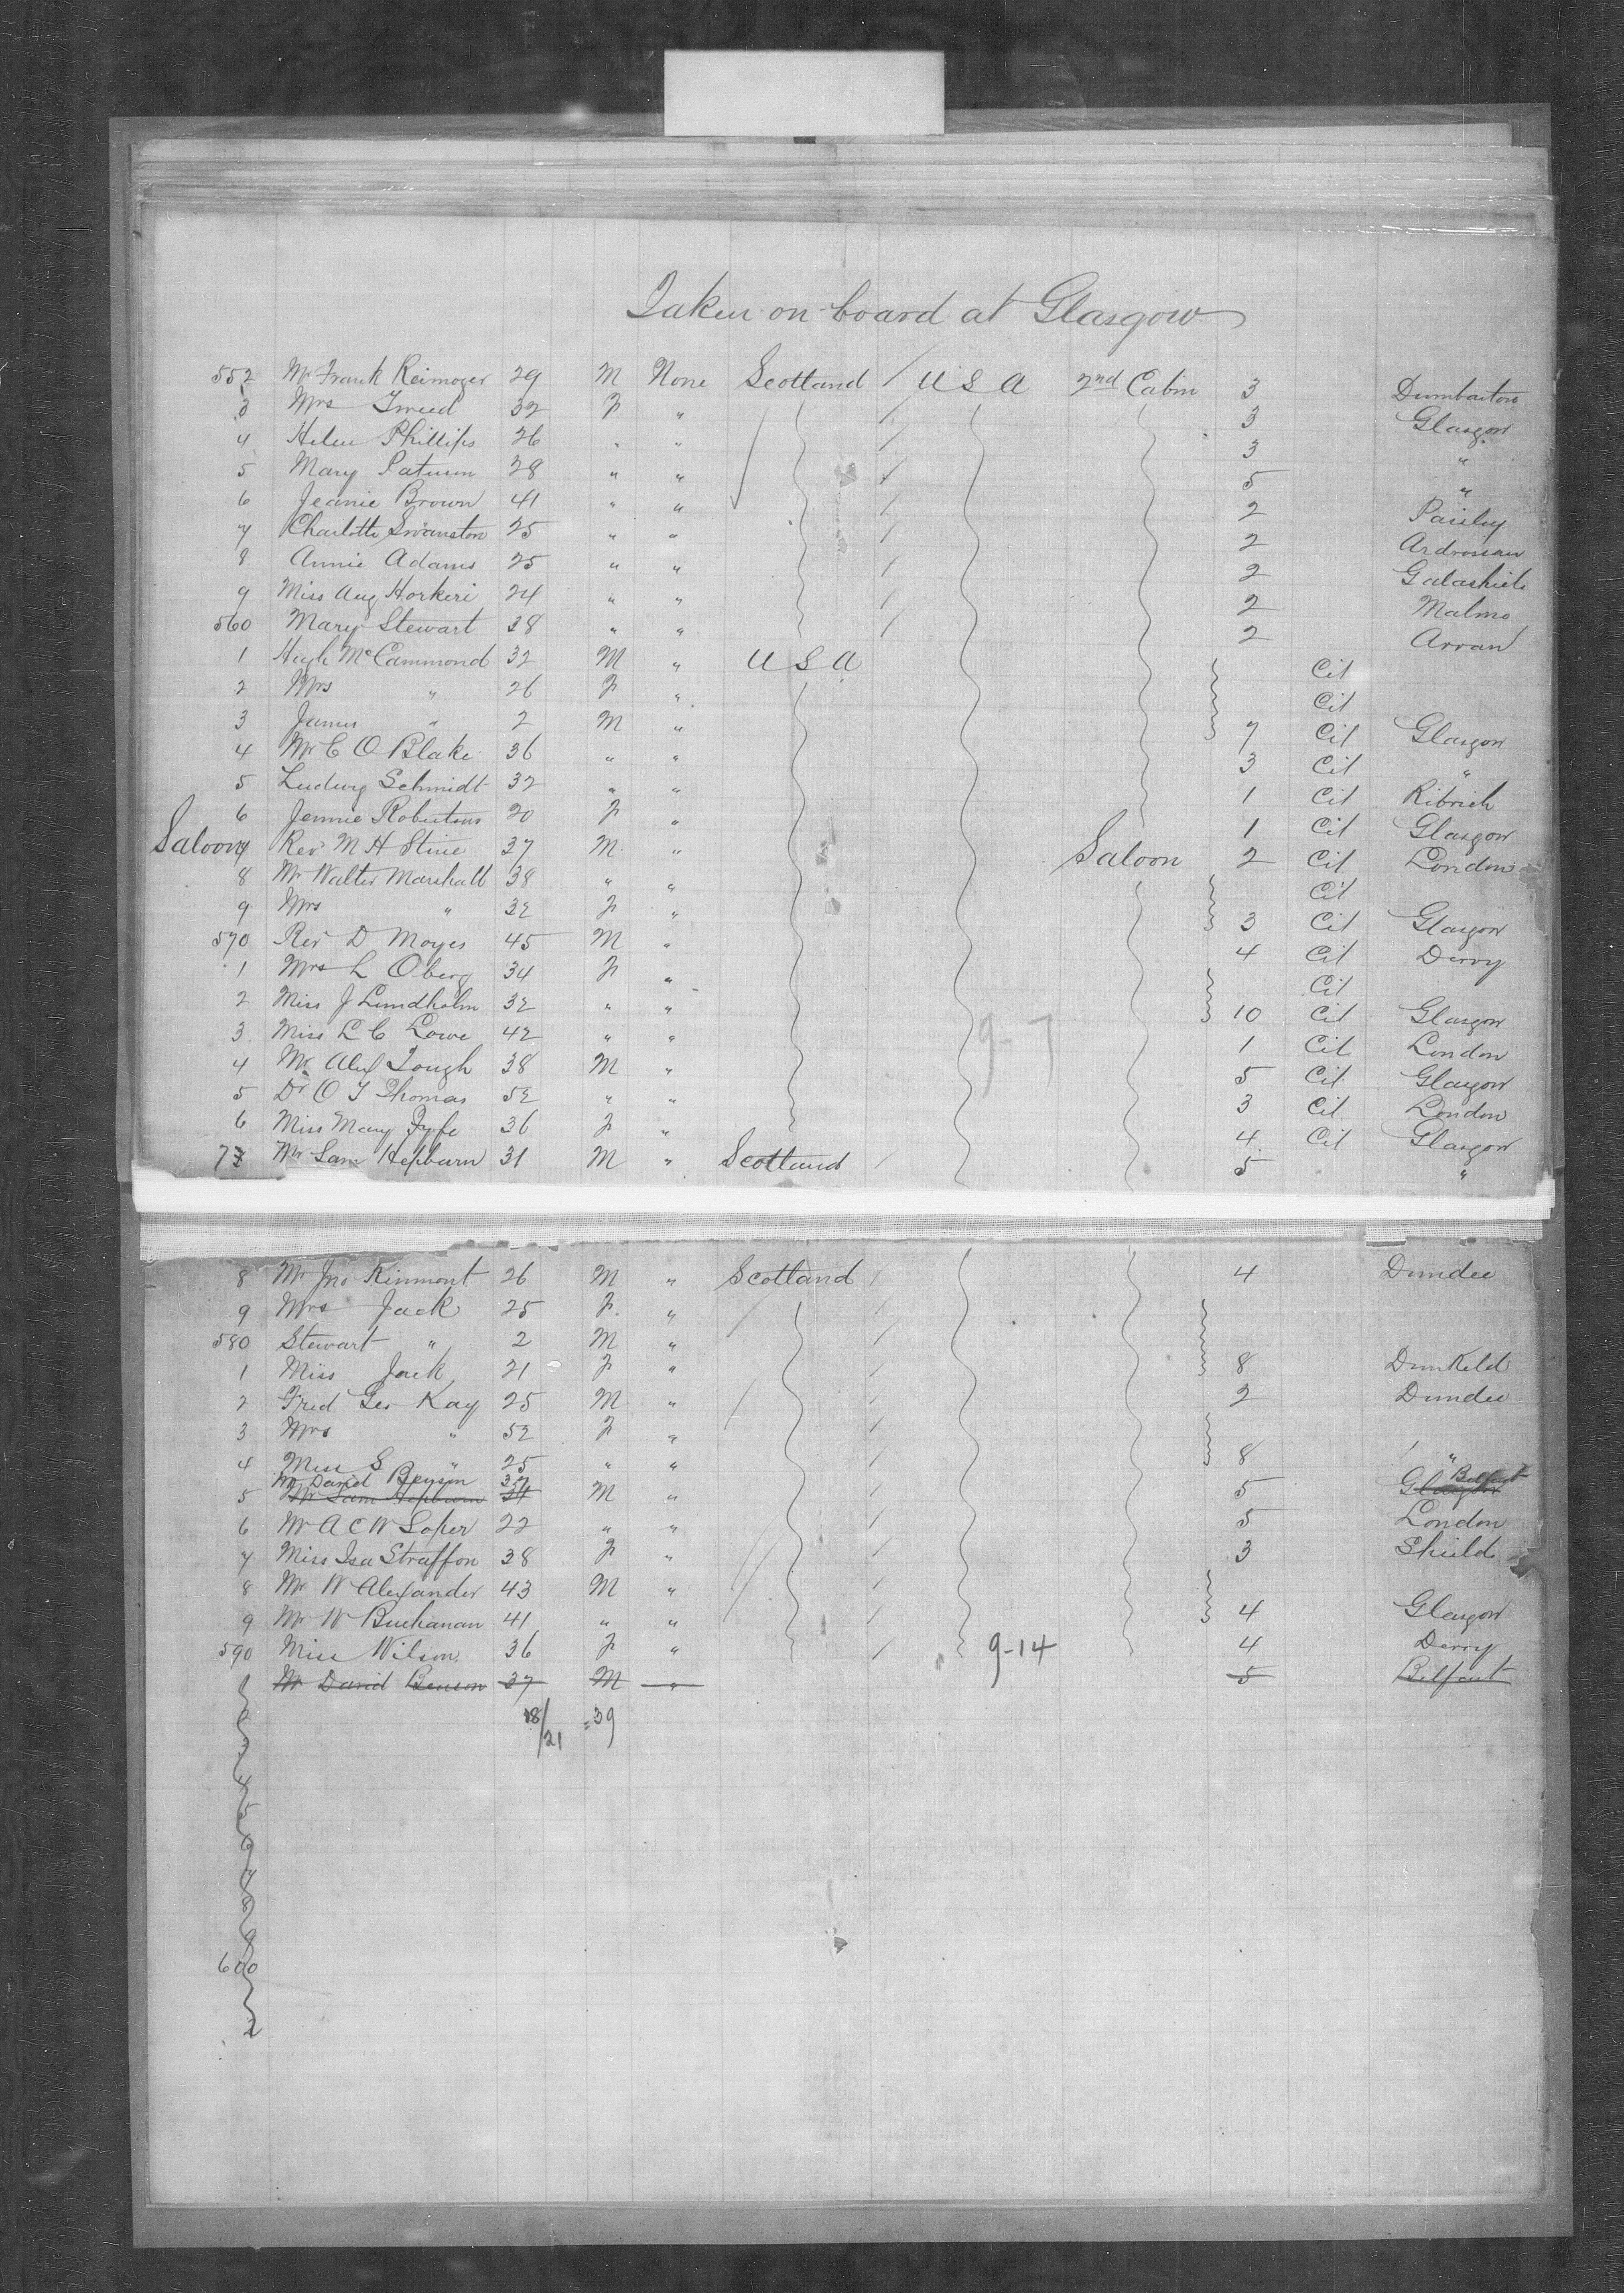 Taken on board at Glasgow
552 Mr Frank Reimoger 29 M None Scotland / U S A 2nd Cabin 3 Dumbarton
3 Mrs Tweed 32 F " / 3 Glasgow
4 Helen Phillips 26 " " / 3 "
5 Mary Paturson 28 " " / 5 "
6 Jeanie Brown 41 " " / 2 Paisley
7 Charlotte Swanston 25 " " / 2 Ardrossan
8 Annie Adams 25 " " / 2 Galashiels
9 Miss Aug Horkeri 24 " " / 2 Malmo
560 Mary Stewart 38 " " / 2 Arran
1 Hugh McCammond 32 M " U S A Cit
2 Mrs " 26 F " Cit
3 James " 2 M " 7 Cit Glasgow
4 Mr C O Blake 36 " " 3 Cit "
5 Ludwig Schmidt 32 " " 1 Cit Ribrich
6 Jennie Robertson 20 F " 1 Cit Glasgow
Saloon 7 Rev M H Stine 37 M " Saloon 2 Cit London
8 Mr Walter Marshall 38 " " Cit
9 Mrs " 32 F " 3 Cit Glasgow
570 Rev D Moyes 45 M " 4 Cit Derry
1 Mrs L Oberg 34 F " Cit
2 Miss J Lundholm 32 " " 10 Cit Glasgow
3 Miss L C Lowe 42 " " 1 Cit London
4 Mr Alex Tough 38 M " 5 Cit Glasgow
5 Dr O T Thomas 52 " " 3 Cit London
6 Miss Mary Fyfe 36 F " 4 Cit Glasgow
77 Mr Sam Hepburn 31 M " Scotland / 5 "
9-7
8 Mr Jno Kinmont 26 M " Scotland / 4 Dundee
9 Mrs Jack 25 F " /
580 Stewart " 2 M " /
1 Miss Jack 21 F " / 8 Dunkeld
2 Fred Geo Kay 25 M " / 2 Dundee
3 Mrs " 52 F " /
4 Miss S " 25 " " / 8 "
Mr David Benson 37 Belfast
5 Mr Sam Hepburn 31 M " / 5 Glasgow
6 Mr A C W Soper 22 " " / 5 London
7 Miss Isa Straffon 38 F " / 3 Shields
8 Mr W Alexander 43 M " /
9 Mr W Buchanan 41 " " / 4 Glasgow
590 Miss Wilson 36 F " / 9-14 4 Derry
1 Mr David Benson 37 M " 5 Belfast
2 18/21 = 39
3
4
5
6
7
8
9
600